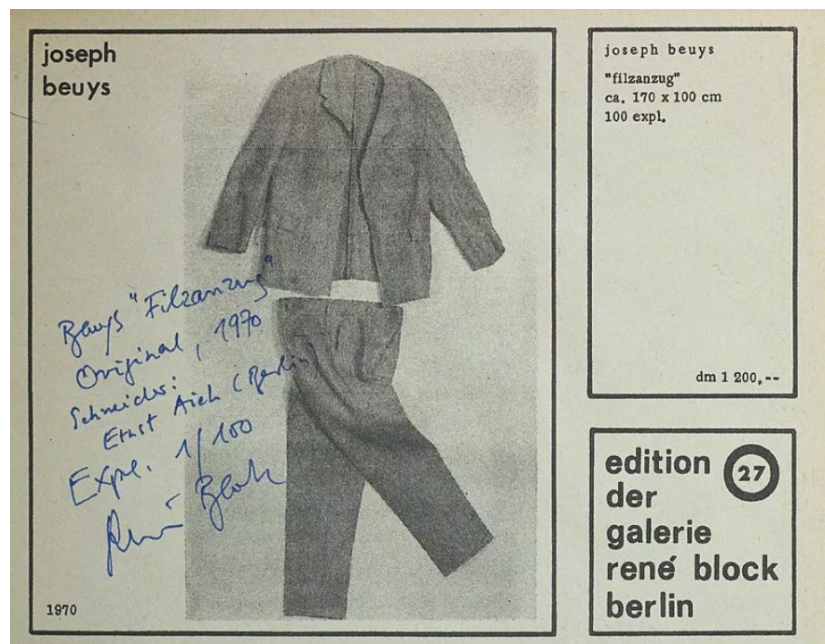 joseph
beuys
Beuys "Filzanzug"
Original, 1970
Schneider:
Ernst Aich (Berlin)
Expl. 1/100
René Block
1970
joseph beuys
"filzanzug"
ca. 170 x 100 cm
100 expl.
dm 1 200,--
edition 27
der
galerie
rené block
berlin